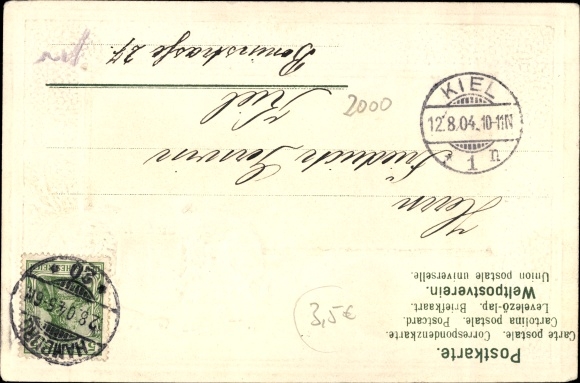 Postkarte.
Carte postale. Correspondenzkarte.
Cartolina postale. Postcard.
Levelező-lap. Briefkaart.
Weltpostverein.
Union postale universelle.
Herrn
Friedrich
Kiel
27.
KIEL
12.8.04.10-11N
* 1 n
2000
3,5€
20